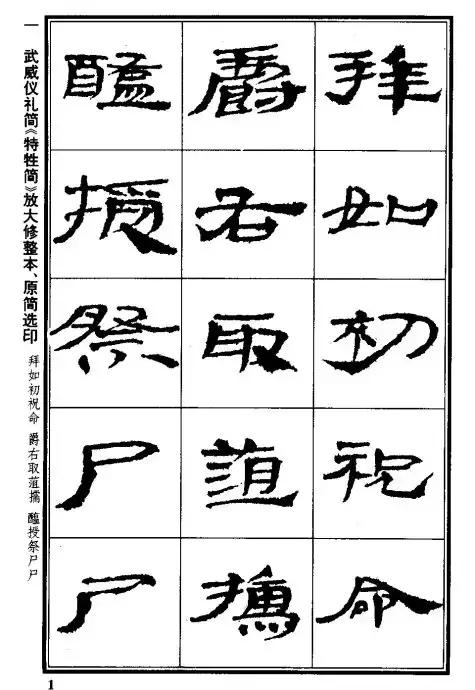 拜如初祝命
爵右取菹擩
醢授祭尸尸
一 武威仪礼简《特牲简》放大修整本、原简选印 拜如初祝命 爵右取菹擩 醢授祭尸尸
1